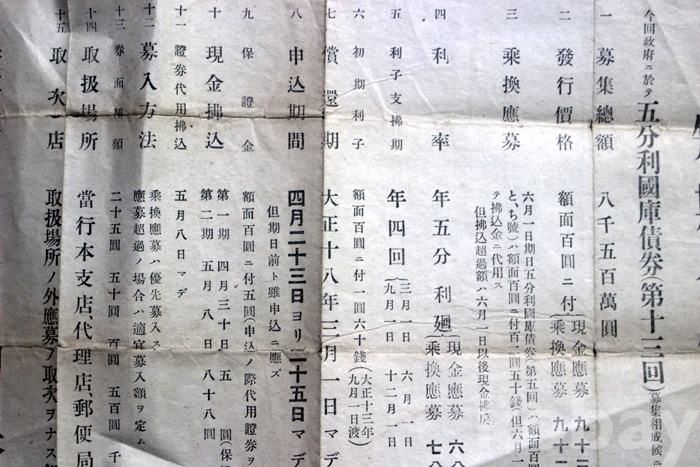 今回政府ニ於テ五分利國庫債券第十三回(募集相成候ニ
一 募集總額 八千五百萬圓
二 發行價格 額面百圓ニ付 現金應募 九十三
乘換應募 九十二
三 乘換應募 六月一日期日五分利國庫債券(第五回)ハ額面百圓
と、ち號)ハ額面百圓ニ付百一圓五十錢(但六月一
テ拂込金ニ代用ス
但拂込超過額ハ六月一日以後現金拂戻
四 利率 年五分利廻 現金應募 六八
乘換應募 七八
五 利子支拂期 年四回(三月一日 六月一日
九月一日 十二月一日
六 初期利子 額面百圓ニ付一圓六十錢(大正十三年
九月一日渡)
七 償還期 大正十八年三月一日マデ
八 申込期間 四月二十三日ヨリ二十五日マデ
但期日前ト雖申込ニ應ズ
九 保證金 額面百圓ニ付五圓(申込ノ際代用證券ヲ
十 現金拂込 第一期 四月三十日 五圓(保證
第二期 五月八日 八十八圓
十一 證券代用拂込 五月八日マデ
十二 募入方法 乘換應募ハ優先募入ス
應募超過ノ場合ハ適宜募入額ヲ定ム
十三 券面種類 二十五圓 五十圓 百圓 五百圓 千
十四 取扱場所 當行本支店、代理店、郵便局
十五 取次店 取扱場所ノ外應募ノ取次ヲナス
bay